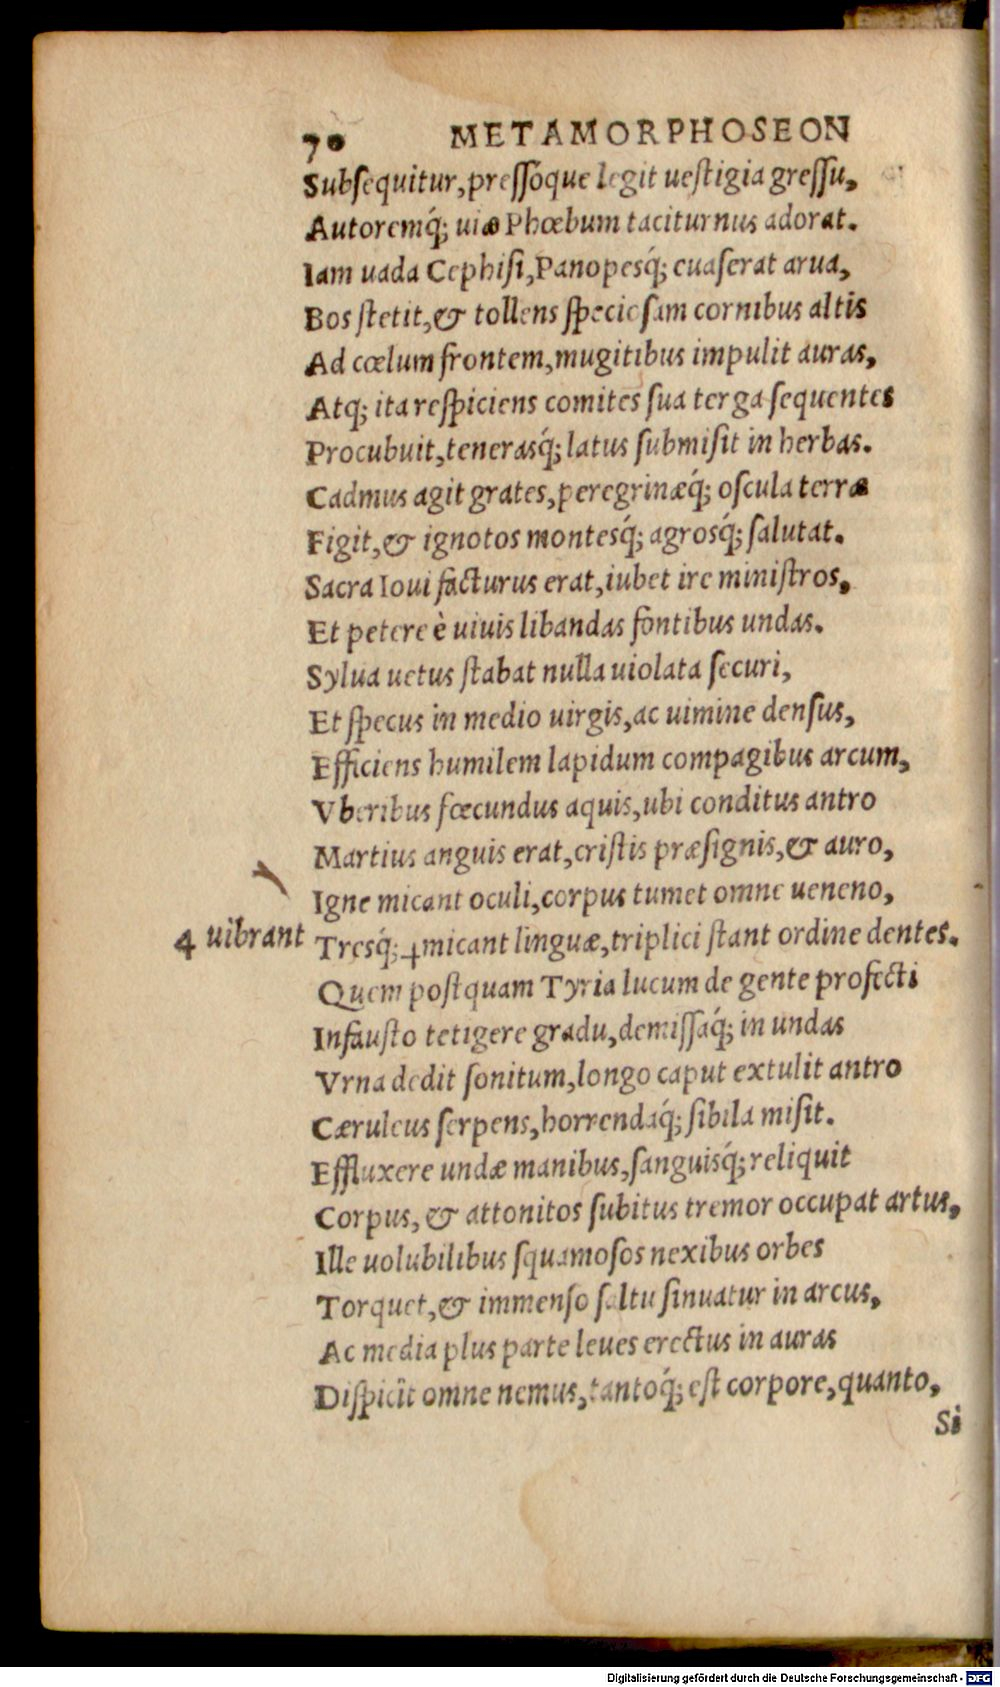 70 METAMORPHOSEON
Subsequitur, pressóque legit uestigia gressu,
Autoremq́; uiæ Phœbum taciturnus adorat.
Iam uada Cephisi, Panopesq́; euaserat arua,
Bos stetit, & tollens speciosam cornibus altis
Ad cœlum frontem, mugitibus impulit auras,
Atq; ita respiciens comites sua terga sequentes
Procubuit, tenerasq́; latus submisit in herbas.
Cadmus agit grates, peregrinæq́; oscula terræ
Figit, & ignotos montesq́; agrosq́; salutat.
Sacra Ioui facturus erat, iubet ire ministros,
Et petere è uiuis libandas fontibus undas.
Sylua uetus stabat nulla uiolata securi,
Et specus in medio uirgis, ac uimine densus,
Efficiens humilem lapidum compagibus arcum,
Vberibus fœcundus aquis, ubi conditus antro
Martius anguis erat, cristis præsignis, & auro,
Igne micant oculi, corpus tumet omne ueneno,
4 uibrant Tresq́; 4 micant linguæ, triplici stant ordine dentes.
Quem postquam Tyria lucum de gente profecti
Infausto tetigere gradu, demissaq́; in undas
Vrna dedit sonitum, longo caput extulit antro
Cæruleus serpens, horrendaq́; sibila misit.
Effluxere undæ manibus, sanguisq́; reliquit
Corpus, & attonitos subitus tremor occupat artus,
Ille uolubilibus squamosos nexibus orbes
Torquet, & immenso saltu sinuatur in arcus,
Ac media plus parte leues erectus in auras
Dispicit omne nemus, tantoq́; est corpore, quanto,
Si
Digitalisierung gefördert durch die Deutsche Forschungsgemeinschaft - DFG